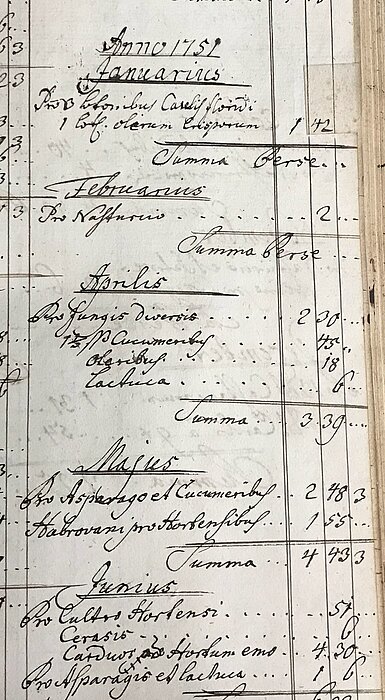 Anno 1751
Januarius
Pro 3 lotonibus Caulis floridi
1 lot. olerum Crisporum 1 42
Summa Per se
Februarius
Pro Nasturcio 2
Summa Per se
Aprilis
Pro fungis diversis 2 30
Cucumeribus 45
Oleribus 18
Lactuca 6
Summa 3 39
Majus
Pro Asparago et Cucumeribus 2 48 3
Habrovani pro Hortensibus 1 55
Summa 4 43 3
Junius
Pro Cultro Hortensi 51
Cerasis 6
Carduos ad Hortum emo 4 30
Pro Asparagis et lactuca 1 6